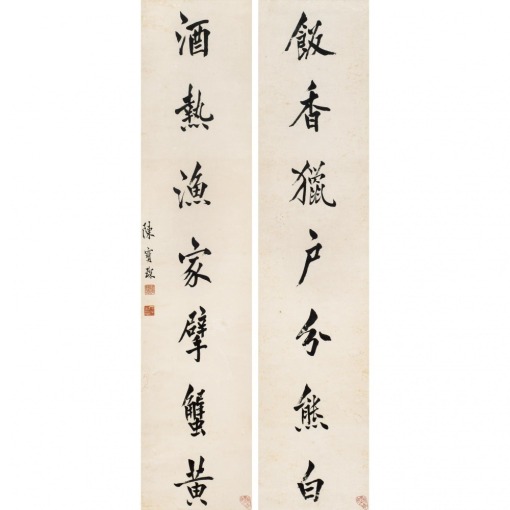 飯香獵戶分熊白
酒熱漁家擘蟹黄
陳寶琛